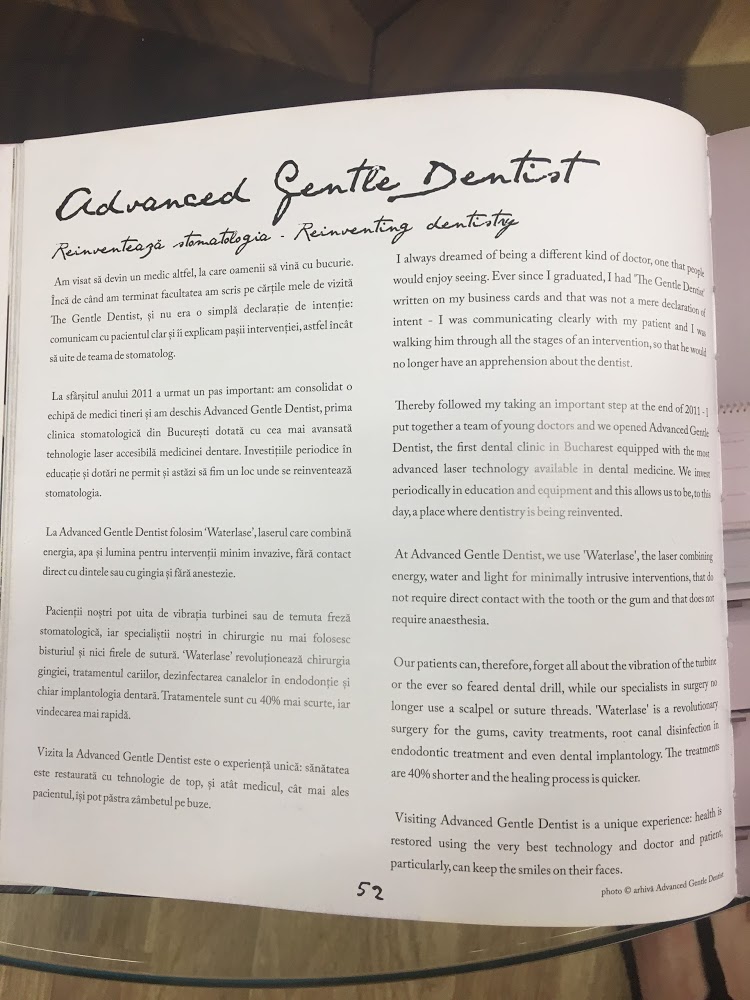 Advanced Gentle Dentist
Reinventează stomatologia - Reinventing dentistry
Am visat să devin un medic altfel, la care oamenii să vină cu bucurie.
Încă de când am terminat facultatea am scris pe cărțile mele de vizită
The Gentle Dentist, și nu era o simplă declarație de intenție:
comunicam cu pacientul clar și îi explicam pașii intervenției, astfel încât
să uite de teama de stomatolog.
La sfârșitul anului 2011 a urmat un pas important: am consolidat o
echipă de medici tineri și am deschis Advanced Gentle Dentist, prima
clinica stomatologică din București dotată cu cea mai avansată
tehnologie laser accesibilă medicinei dentare. Investițiile periodice în
educație și dotări ne permit și astăzi să fim un loc unde se reinventează
stomatologia.
La Advanced Gentle Dentist folosim 'Waterlase', laserul care combină
energia, apa și lumina pentru intervenții minim invazive, fără contact
direct cu dintele sau cu gingia și fără anestezie.
Pacienții noștri pot uita de vibrația turbinei sau de temuta freză
stomatologică, iar specialiștii noștri in chirurgie nu mai folosesc
bisturiul și nici firele de sutură. 'Waterlase' revoluționează chirurgia
gingiei, tratamentul cariilor, dezinfectarea canalelor în endodonție și
chiar implantologia dentară. Tratamentele sunt cu 40% mai scurte, iar
vindecarea mai rapidă.
Vizita la Advanced Gentle Dentist este o experiență unică: sănătatea
este restaurată cu tehnologie de top, și atât medicul, cât mai ales
pacientul, își pot păstra zâmbetul pe buze.
I always dreamed of being a different kind of doctor, one that people
would enjoy seeing. Ever since I graduated, I had 'The Gentle Dentist'
written on my business cards and that was not a mere declaration of
intent - I was communicating clearly with my patient and I was
walking him through all the stages of an intervention, so that he would
no longer have an apprehension about the dentist.
Thereby followed my taking an important step at the end of 2011 - I
put together a team of young doctors and we opened Advanced Gentle
Dentist, the first dental clinic in Bucharest equipped with the most
advanced laser technology available in dental medicine. We invest
periodically in education and equipment and this allows us to be, to this
day, a place where dentistry is being reinvented.
At Advanced Gentle Dentist, we use 'Waterlase', the laser combining
energy, water and light for minimally intrusive interventions, that do
not require direct contact with the tooth or the gum and that does not
require anaesthesia.
Our patients can, therefore, forget all about the vibration of the turbine
or the ever so feared dental drill, while our specialists in surgery no
longer use a scalpel or suture threads. 'Waterlase' is a revolutionary
surgery for the gums, cavity treatments, root canal disinfection in
endodontic treatment and even dental implantology. The treatments
are 40% shorter and the healing process is quicker.
Visiting Advanced Gentle Dentist is a unique experience: health is
restored using the very best technology and doctor and patient,
particularly, can keep the smiles on their faces.
photo © arhivă Advanced Gentle Dentist
52